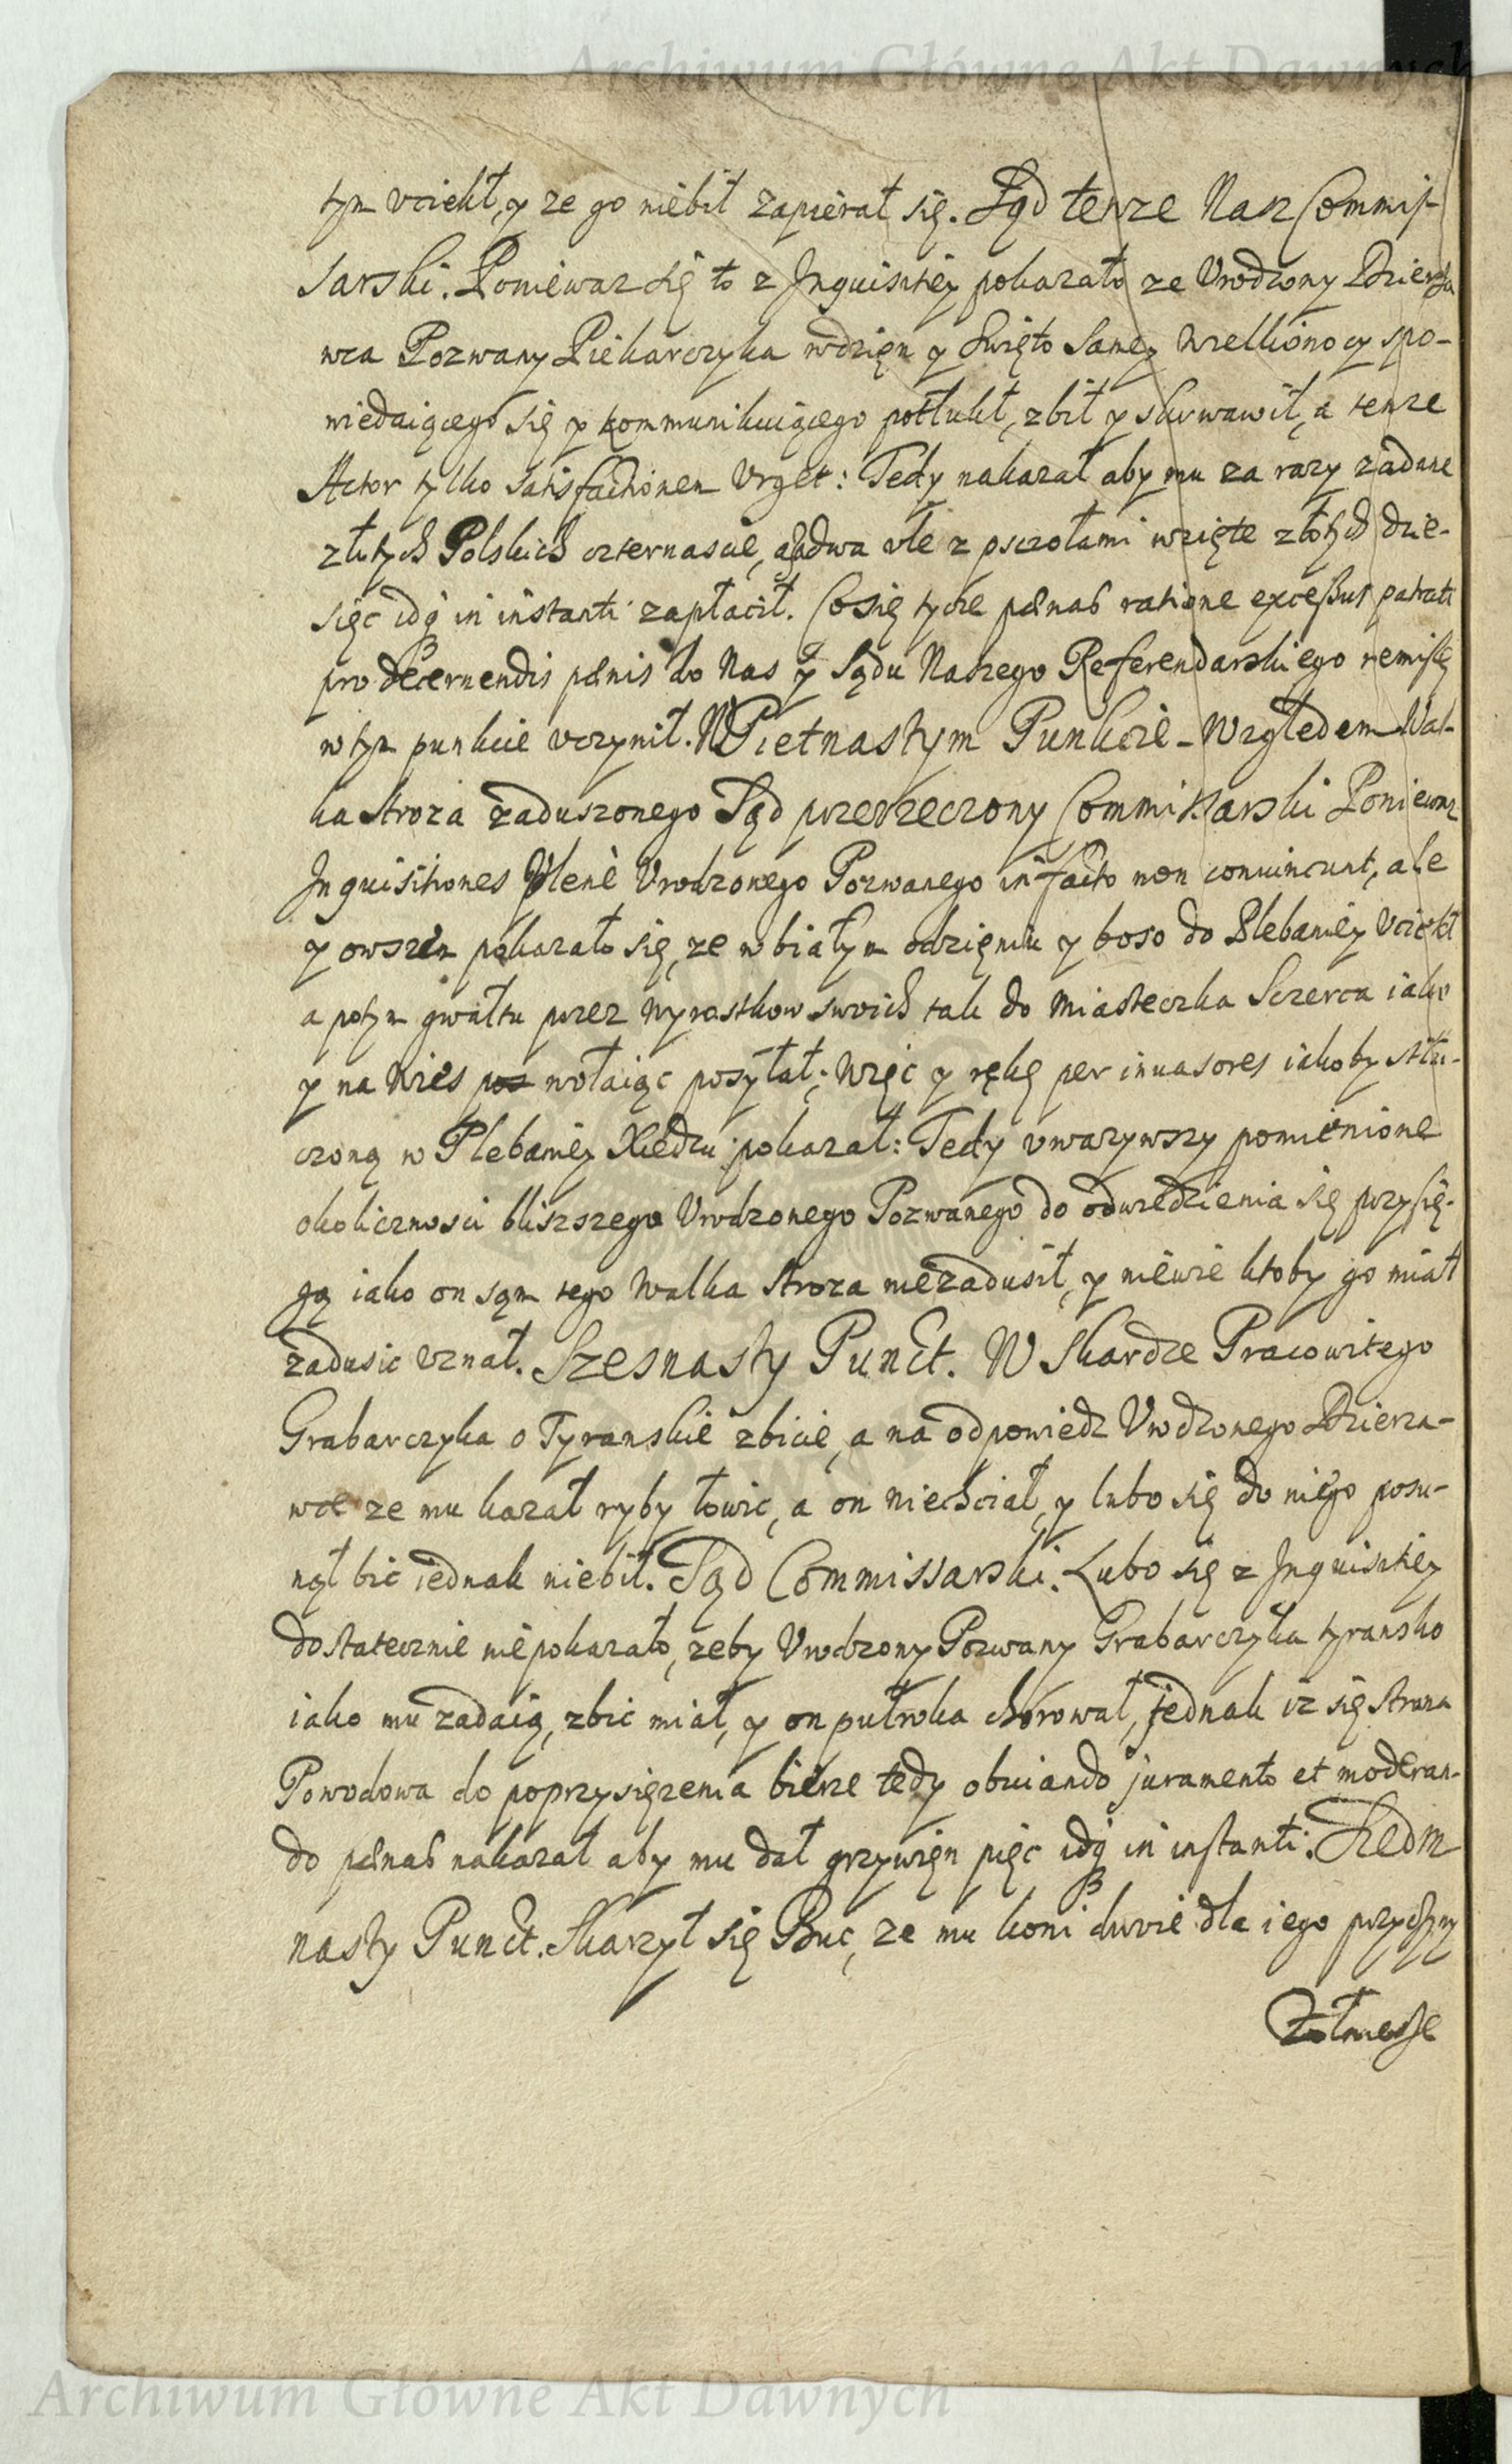 Archiwum Główne Akt Dawnych
tym vciekł, y ze go niebił zapierał się. Sąd tenze Nasz Commis-
sarski. Poniewaz się to z Inquisitiey pokazało ze Vrodzony Dzierza
wca Pozwany Piekarczyka wdzięn y Swięto Samey Wielkionocy spo-
wiedaiącego się y kommunikuiącego potłukł, zbił y skrwawił, a tenze
Actor tylko satisfactionem Vrget: Tedy nakazał aby mu za razy zadane
złotych Polskich czternascie, a dwa vle z pszczołami wzięte złotych dzie-
sięc idq in instanti zapłacił. Co się tycze pænas ratione excessus patrati
pro decernendis pænis do Nas y Sądu Naszego Referendarskiego remissę
w tym punkcie vczynił. W Pietnastym Punkcie - Względem Wal-
ka Stroza zaduszonego Sąd przerzeczony Commissarski Poniewaz
Inquisitiones plenè Vrodzonego Pozwanego in facto non conuincunt, ale
y owszem pokazało się, ze w białym odzięniu y boso do Plebaniey Vciekł
a potym gwałtu przez wyrostkow swoich tak do Miasteczka Sczerca iako
y na Wies wołaiąc posyłał; Więc y rękę per inuasores iakoby stłu-
czoną w Plebaniey Xiedzu pokazał: Tedy vwazywszy pomienione
okolicznosci bliszszego Vrodzonego Pozwanego do odwiedzienia się przysię-
gą iako on sąm tego Walka Stroza niezadusił, y niewie ktoby go miał
zadusic vznał. Szesnasty Punct. W Skardze Pracowitego
Grabarczyka o Tyranskie zbicie, a na odpowiedz Vrodzonego Dzierza-
wce ze mu kazał ryby łowic, a on niechciał, y lubo się do niego posu-
nął bic iednak niebił. Sąd Commissarski. Lubo się z Inquisitiey
dostatecznie niepokazało, zeby Vrodzony Pozwany Grabarczyka tyransko
iako mu zadaią, zbic miał, y on pułroka chorował, jednak iz się strona
Powodowa do poprzysięzenia bierze tedy obuiando juramento et moderan-
do pænas nakazał aby mu dał grzywięn pięc idq in instanti. Siedm
nasty Punct. Skarzył się Buc, ze mu koni dwie dla iego przyczyny
Zołnierze
Archiwum Główne Akt Dawnych